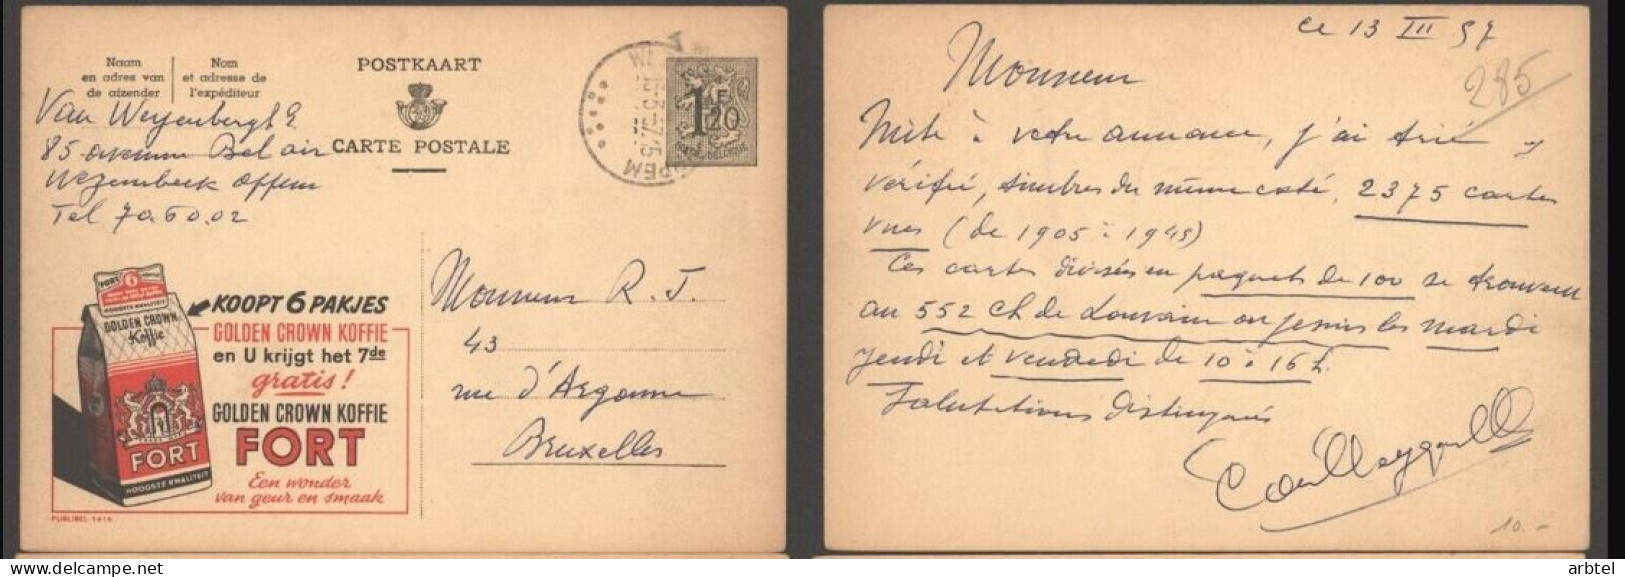 Naam
en adres van
de afzender
Nom
et adresse de
l'expéditeur
POSTKAART
CARTE POSTALE
1F20
BELGIQUE
Van Weyenbergh E
85 avenue Bel air
Wezembeek Oppem
Tel 70.60.02
FORT 6
HOOGSTE KWALITEIT
GOLDEN CROWN
Koffie
FORT
HOOGSTE KWALITEIT
KOOPT 6 PAKJES
GOLDEN CROWN KOFFIE
en U krijgt het 7de
gratis!
GOLDEN CROWN KOFFIE
FORT
Een wonder
van geur en smaak
PUBLIBEL 1416
Monsieur R. J.
43
rue d'Argonne
Bruxelles
ce 13 III 57
285
Monsieur
Suite à votre annonce, j'ai trié et
vérifié, timbres du même coté, 2375 cartes
vues (de 1905 à 1945)
Ces cartes divisées en paquets de 100 se trouvent
au 552 Ch de Louvain ou je suis les mardi
jeudi et vendredi de 10 à 16 h.
Salutations distinguées
10.-
arbtel